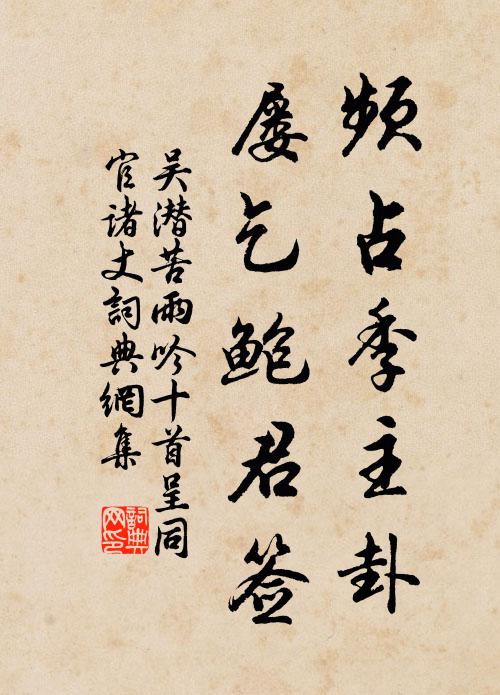 频占季主卦
屡乞鲍君签
吴潜苦雨吟十首呈同
官诸丈詞典網集
詞典
网印